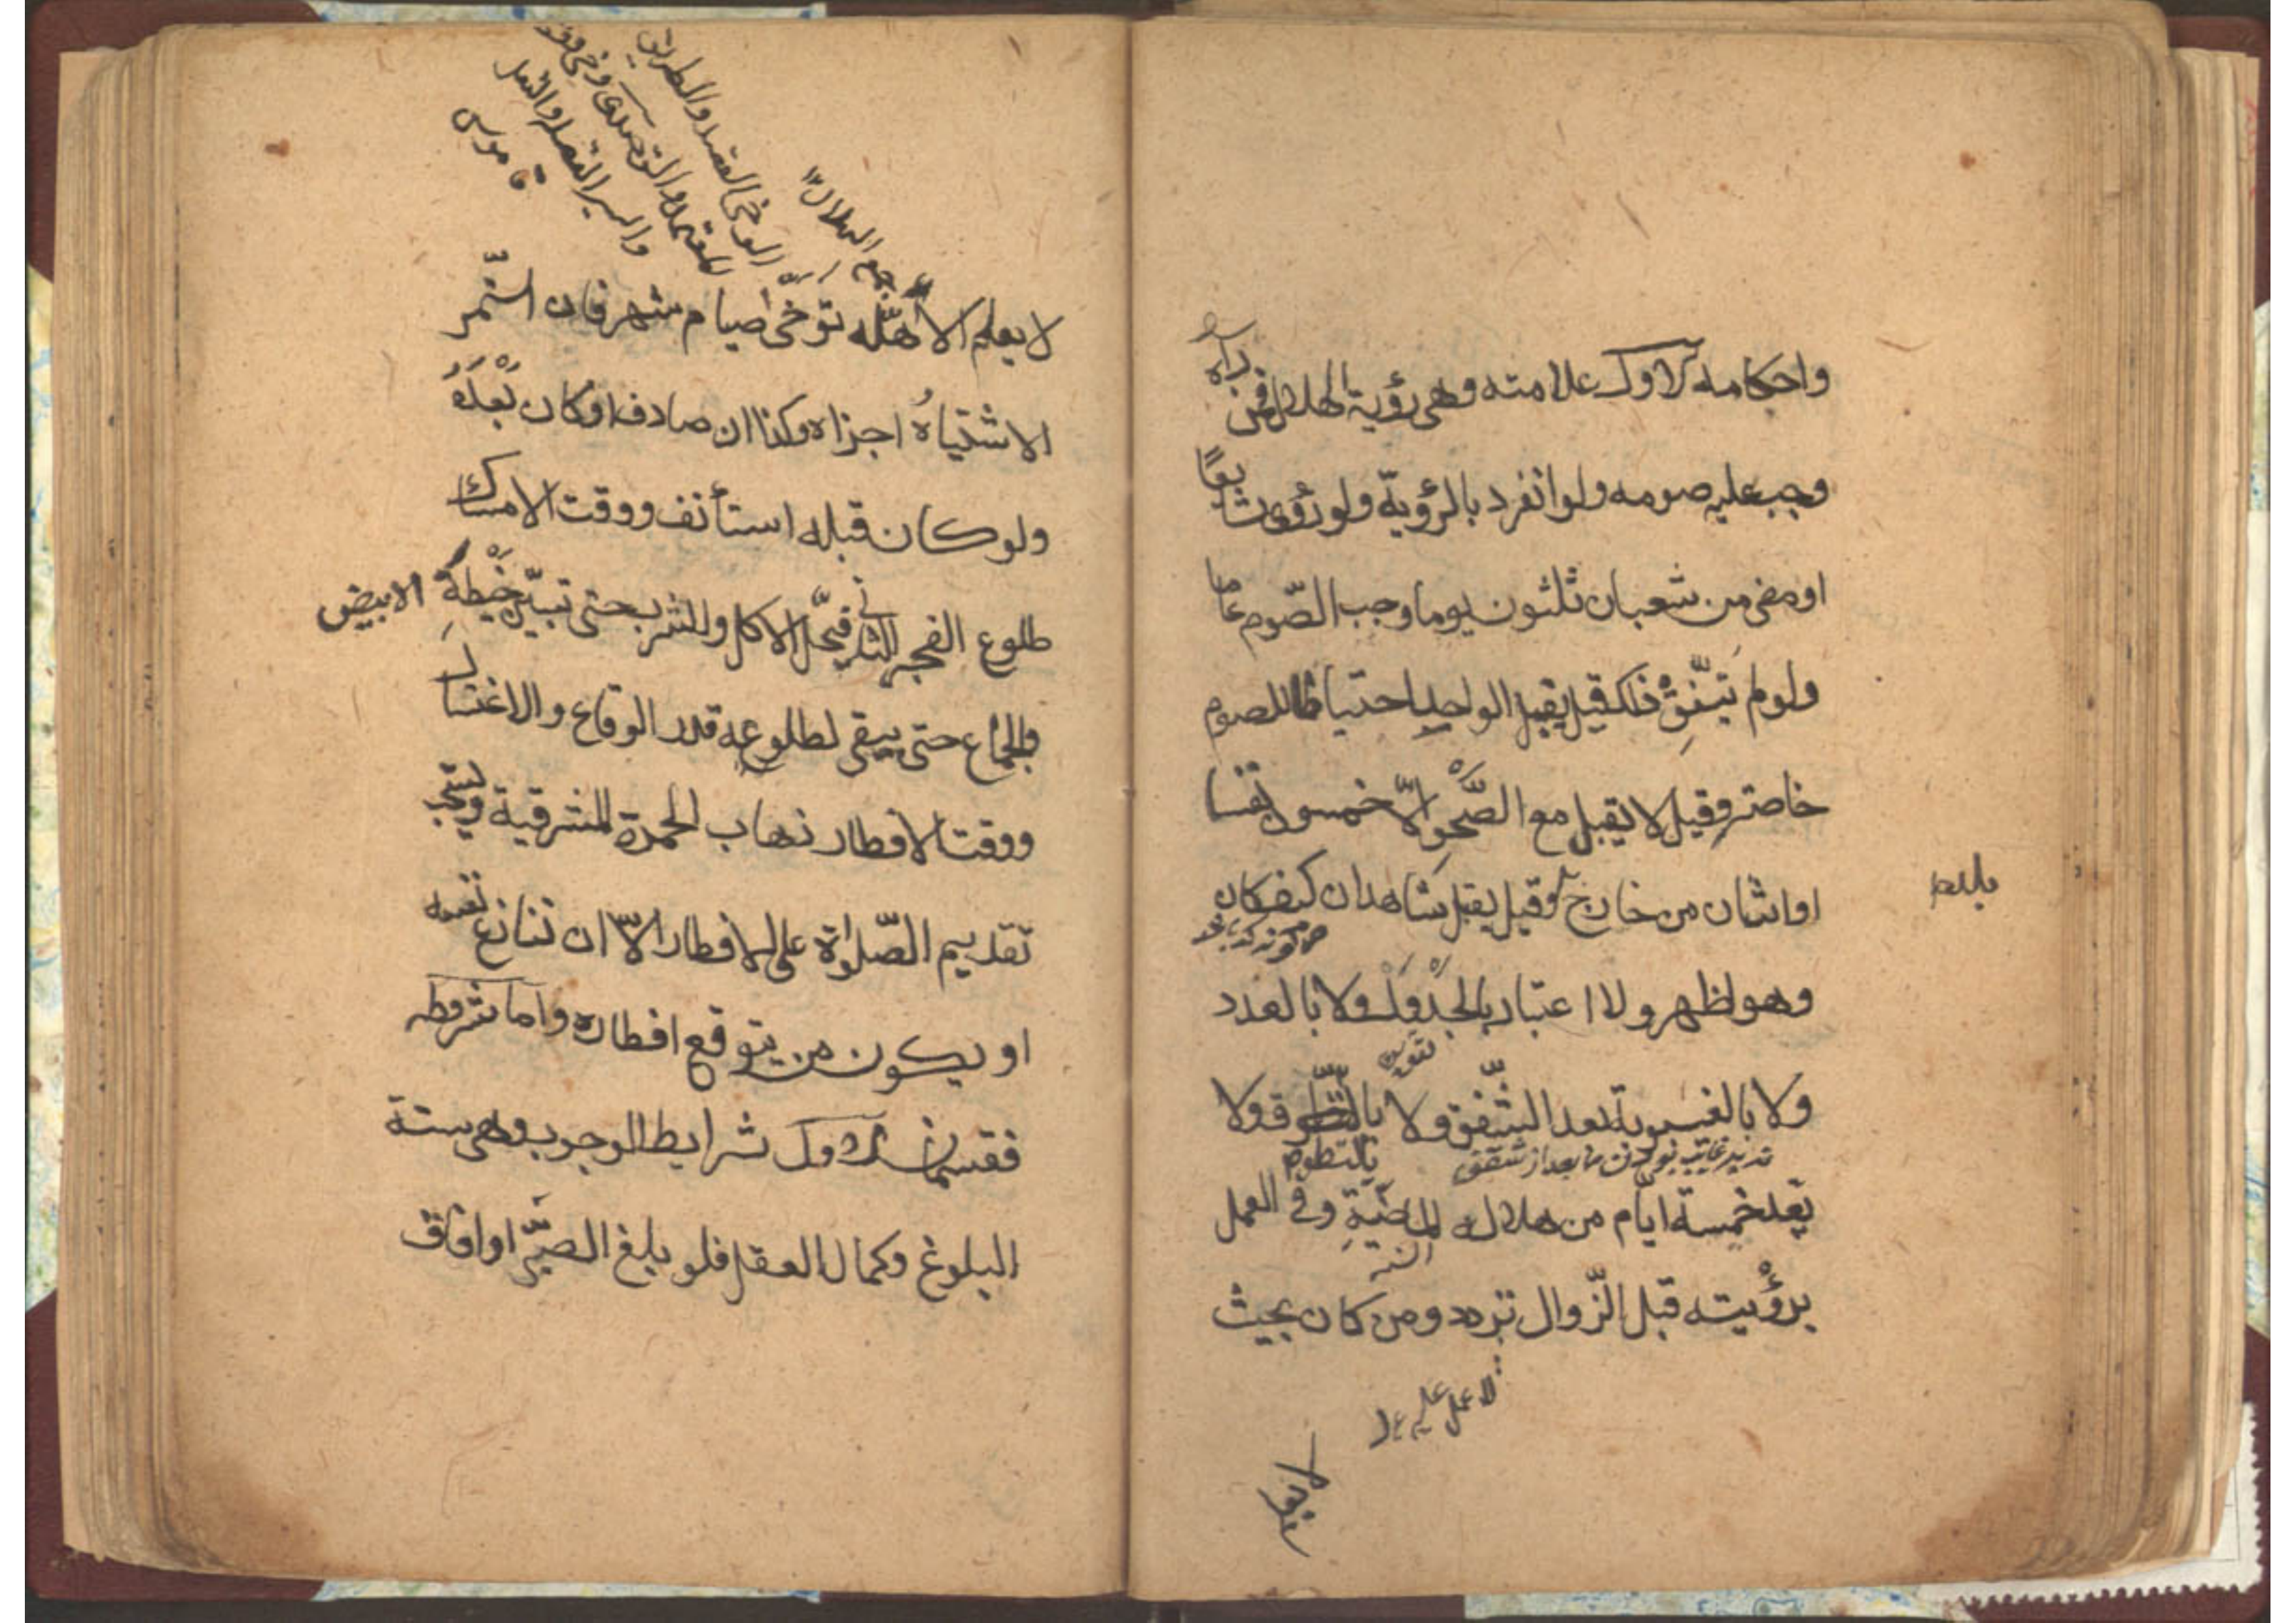 واحكامه الاول علامته وهى رؤية الهلال فمن رآه
وجب عليه صومه ولو انفرد بالرؤية ولو رؤى شايعًا
او مضى من شعبان ثلثون يوما وجب الصّوم عامّا
ولو لم يتّفق ذلك قيل يقبل الواحد احتياطا للصوم
خاصة وقيل لا يقبل مع الصّحو الّا خمسون نفسا
او اثنان من خارج وقيل يقبل شاهدان كيف كان
وهو اظهر ولا اعتبار بالجدول ولا بالعدد
تقويم
ولا بالغيبوبة بعد الشّفق ولا بالتطوق ولا
بالتطوق
بعد خمسة ايّام من هلال الماضية وفى العمل
السنة
برؤيته قبل الزّوال تردد ومن كان بحيث
لا عمل عليه
جمع الهلال
الوخى القصد والطريق
المعتمد والقاصد
والسير القصد والفعل
قاموس
لا يعلم الاهلّه توخّى صيام شهر فان استمّر
الاشتباه اجزاه وكذا ان صادف او كان بعده
ولو كان قبله استأنف ووقت الامساك
طلوع الفجر الثانى فيحلّ الاكل والشرب حتى تبيّن خيطه الابيض
والجماع حتى يبقى لطلوعه قدر الوقاع والاغتسال
ووقت الافطار ذهاب الحمرة المشرقية ويستحب
تقديم الصّلوٰة على الافطار الّا ان تنازع نفسه
او يكون من يتوقع افطاره واما شروطه
فقسمان الاول شرايط الوجوب وهى ستة
البلوغ وكمال العقل فلو بلغ الصبىّ او افاق